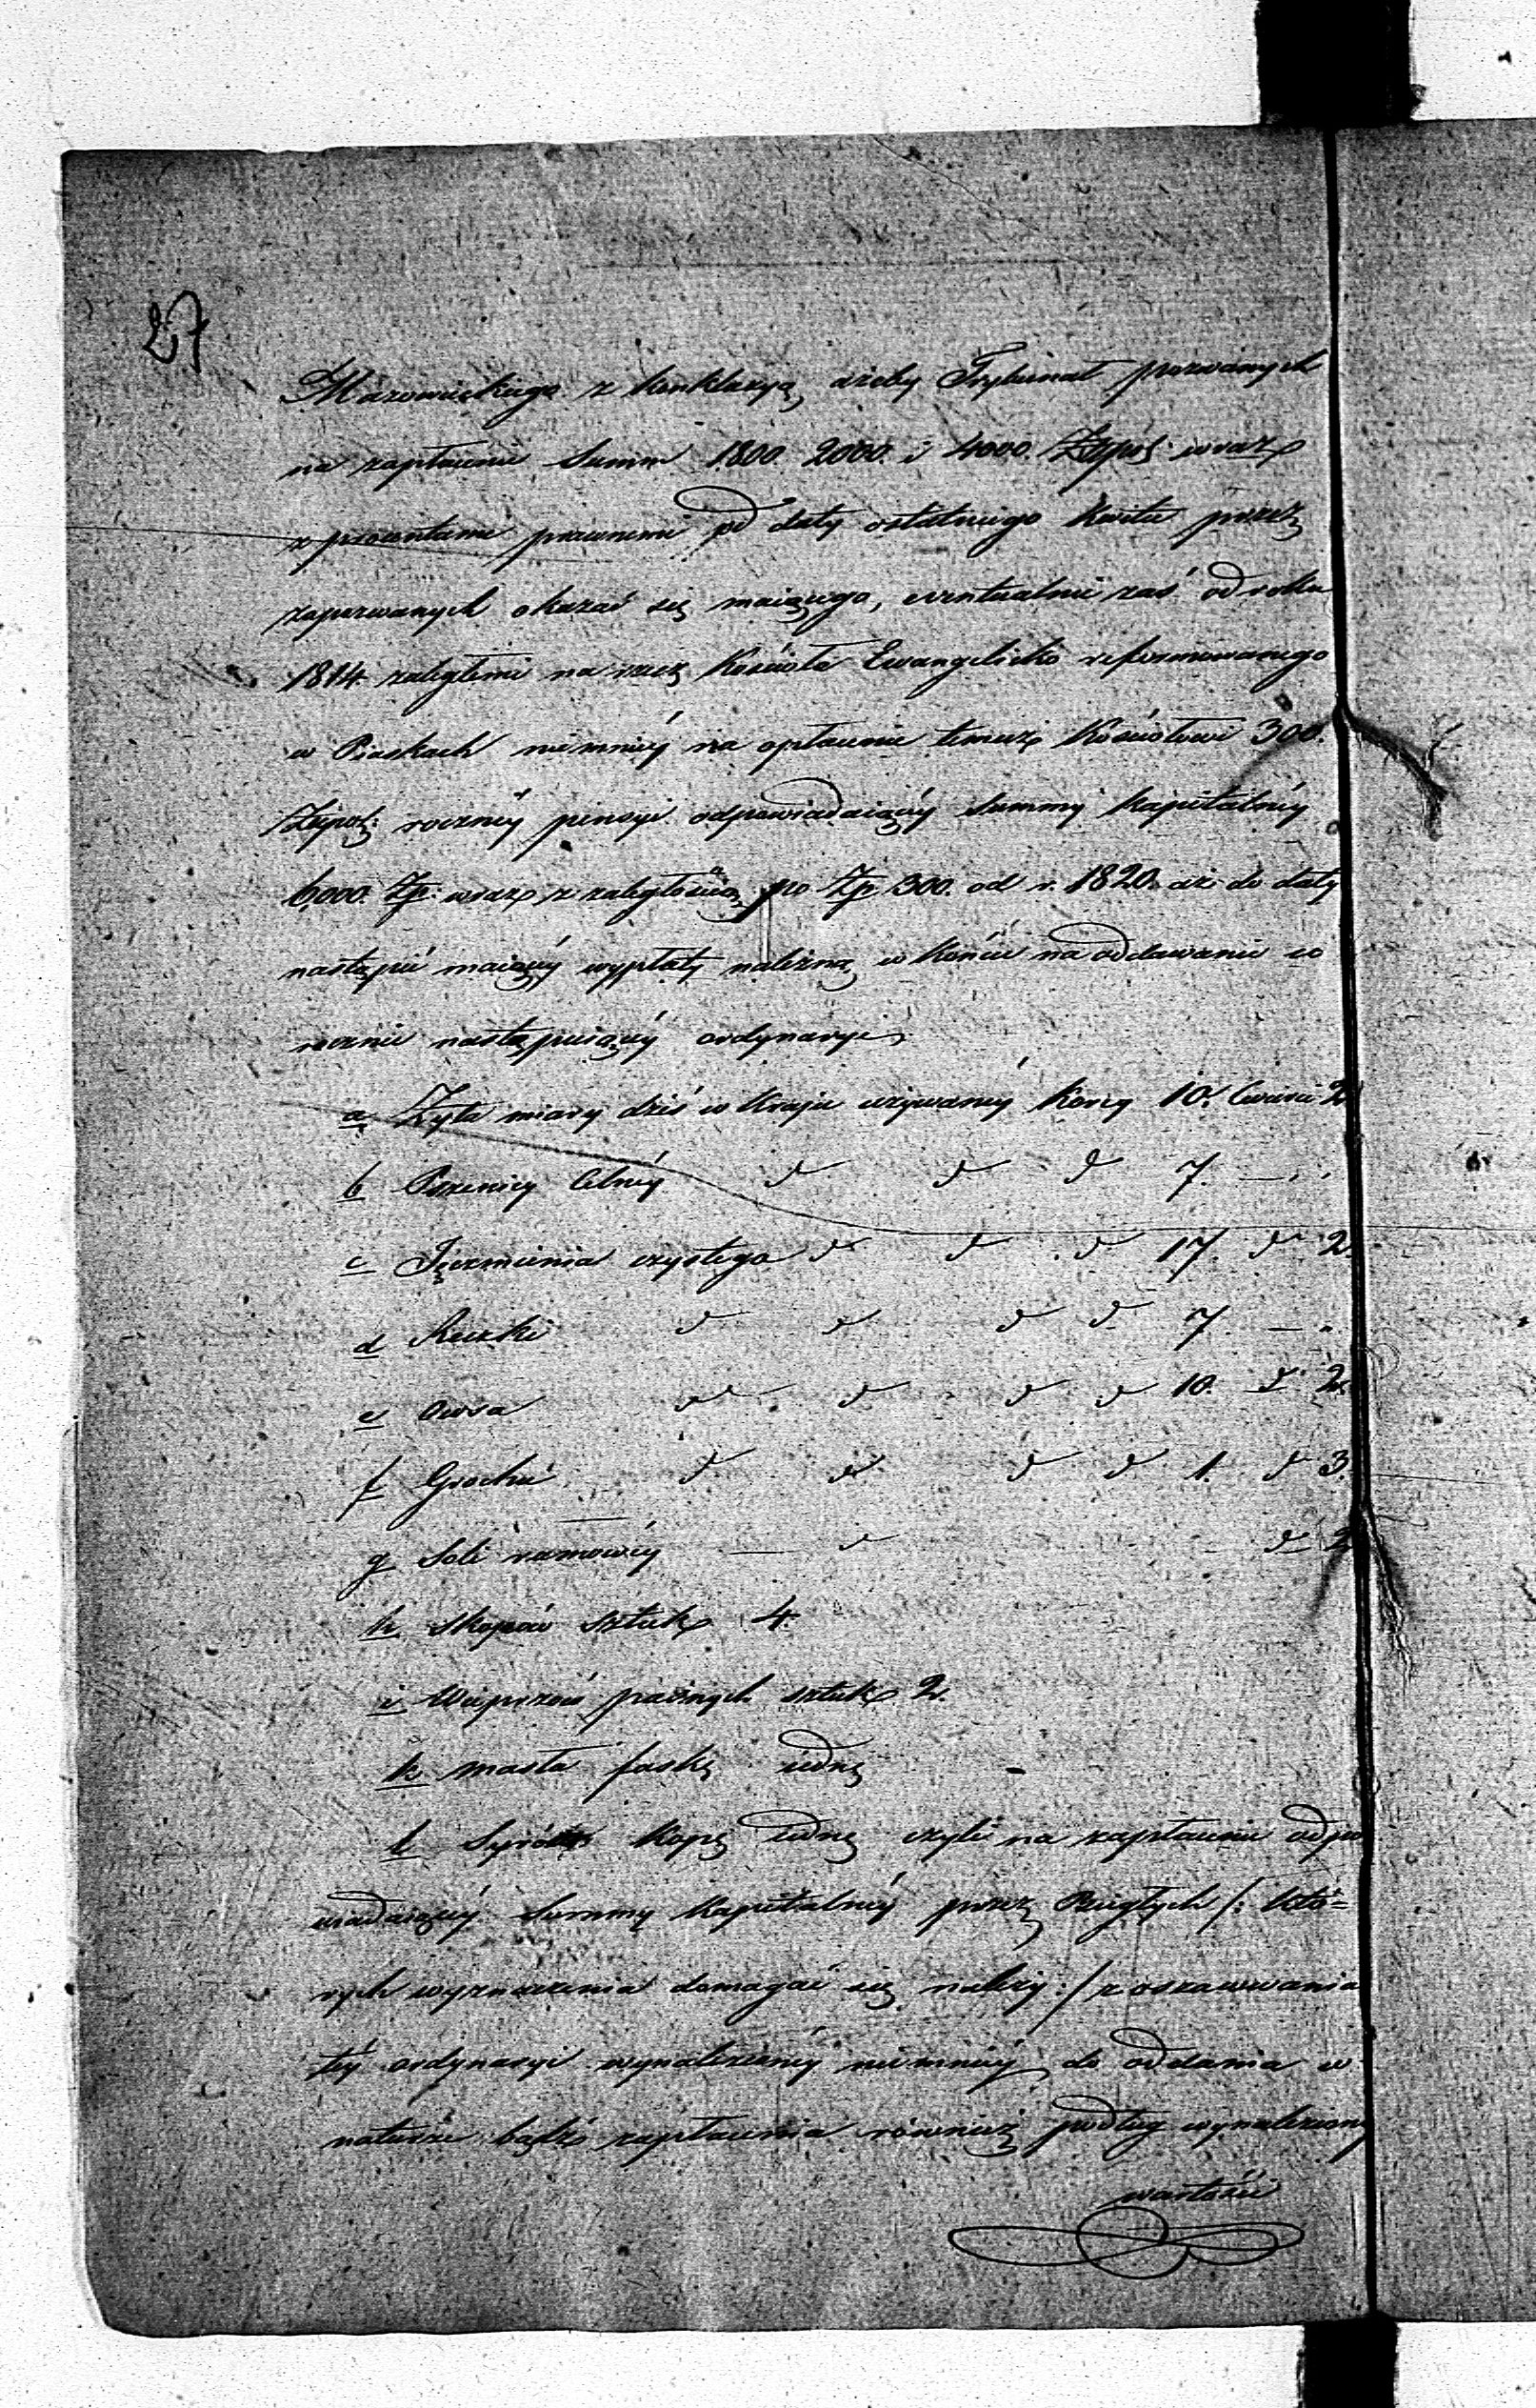 27
Mazowieckiego z konkluzyą, ażeby Trybunał pozwanych
na zapłacenie Summ 1800. 2000. i 4000. Złpol: wraz
z prowentami prawnemi od daty ostatniego kwitu przez
zapozwanych okazać się maiącego, eventualnie zaś od roku
1814 zaległemi na rzecz Kościoła Ewangelicko reformowanego
w Piaskach niemniéy na opłacenie temuż Kościołowi 300.
Złpol: rocznéy pensyi odpowiadaiącéy Summy kapitalnéy
6,000. Zp: wraz z zaległością po Zp 300. od r. 1820. aż do daty
nastąpić maiącéy wypłaty należną w końcu na oddawanie co
rocznie następuiącéy ordynaryi
a Żyta miary dziś w kraju używanéy Korcy 10. Cwierci 2
b Pszenicy Celnéy d d d 7. — .
c Jęczmienia czystego d d d 17. d 2.
d Reczki d d d d 7. — .
e Owsa d d d d 10. d 2.
f Grochu d d d d 1. d 3.
g Soli ramowéy — d d 2
h Skopów sztuk 4.
i Wieprzów paśnych sztuk 2.
k masła faskę iednę
l Syrów Kopę iednę czyli na zapłacenie odpo
wiadaiącéy Summy Kapitalnéy przez Biegłych /: któ=
rych wyznaczenia domagać się należy :/ z oszacowania
téy ordynaryi wynalezionéy niemniéy do oddania w
naturze bądź zapłacenia również podług wynalezioney
wartości